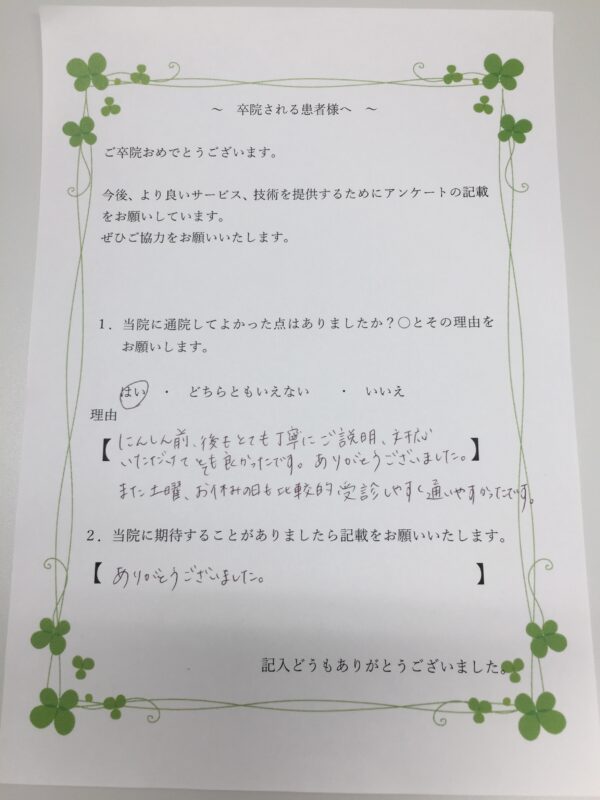 ～ 卒院される患者様へ ～
ご卒院おめでとうございます。
今後、より良いサービス、技術を提供するためにアンケートの記載
をお願いしています。
ぜひご協力をお願いいたします。
１．当院に通院してよかった点はありましたか？〇とその理由を
お願いします。
はい ・ どちらともいえない ・ いいえ
理由
【にんしん前、後もとても丁寧にご説明、対応
いただけてとても良かったです。ありがとうございました。】
また土曜、お休みの日も比較的受診しやすく通いやすかったです。
２．当院に期待することがありましたら記載をお願いいたします。
【 ありがとうございました。 】
記入どうもありがとうございました。